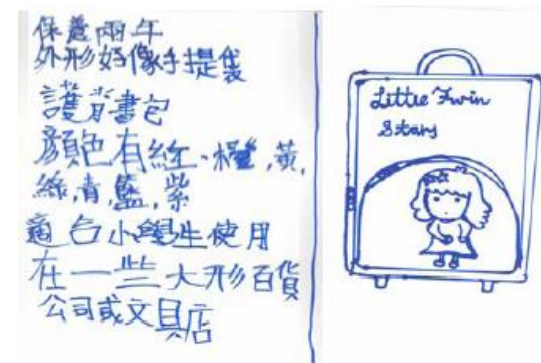 保養兩年
外形好像手提袋
護背書包
顏色有紅、橙,黃,
綠,青,藍,紫
適合小學生使用
在一些大形百貨
公司或文具店
Little Twin
Stars